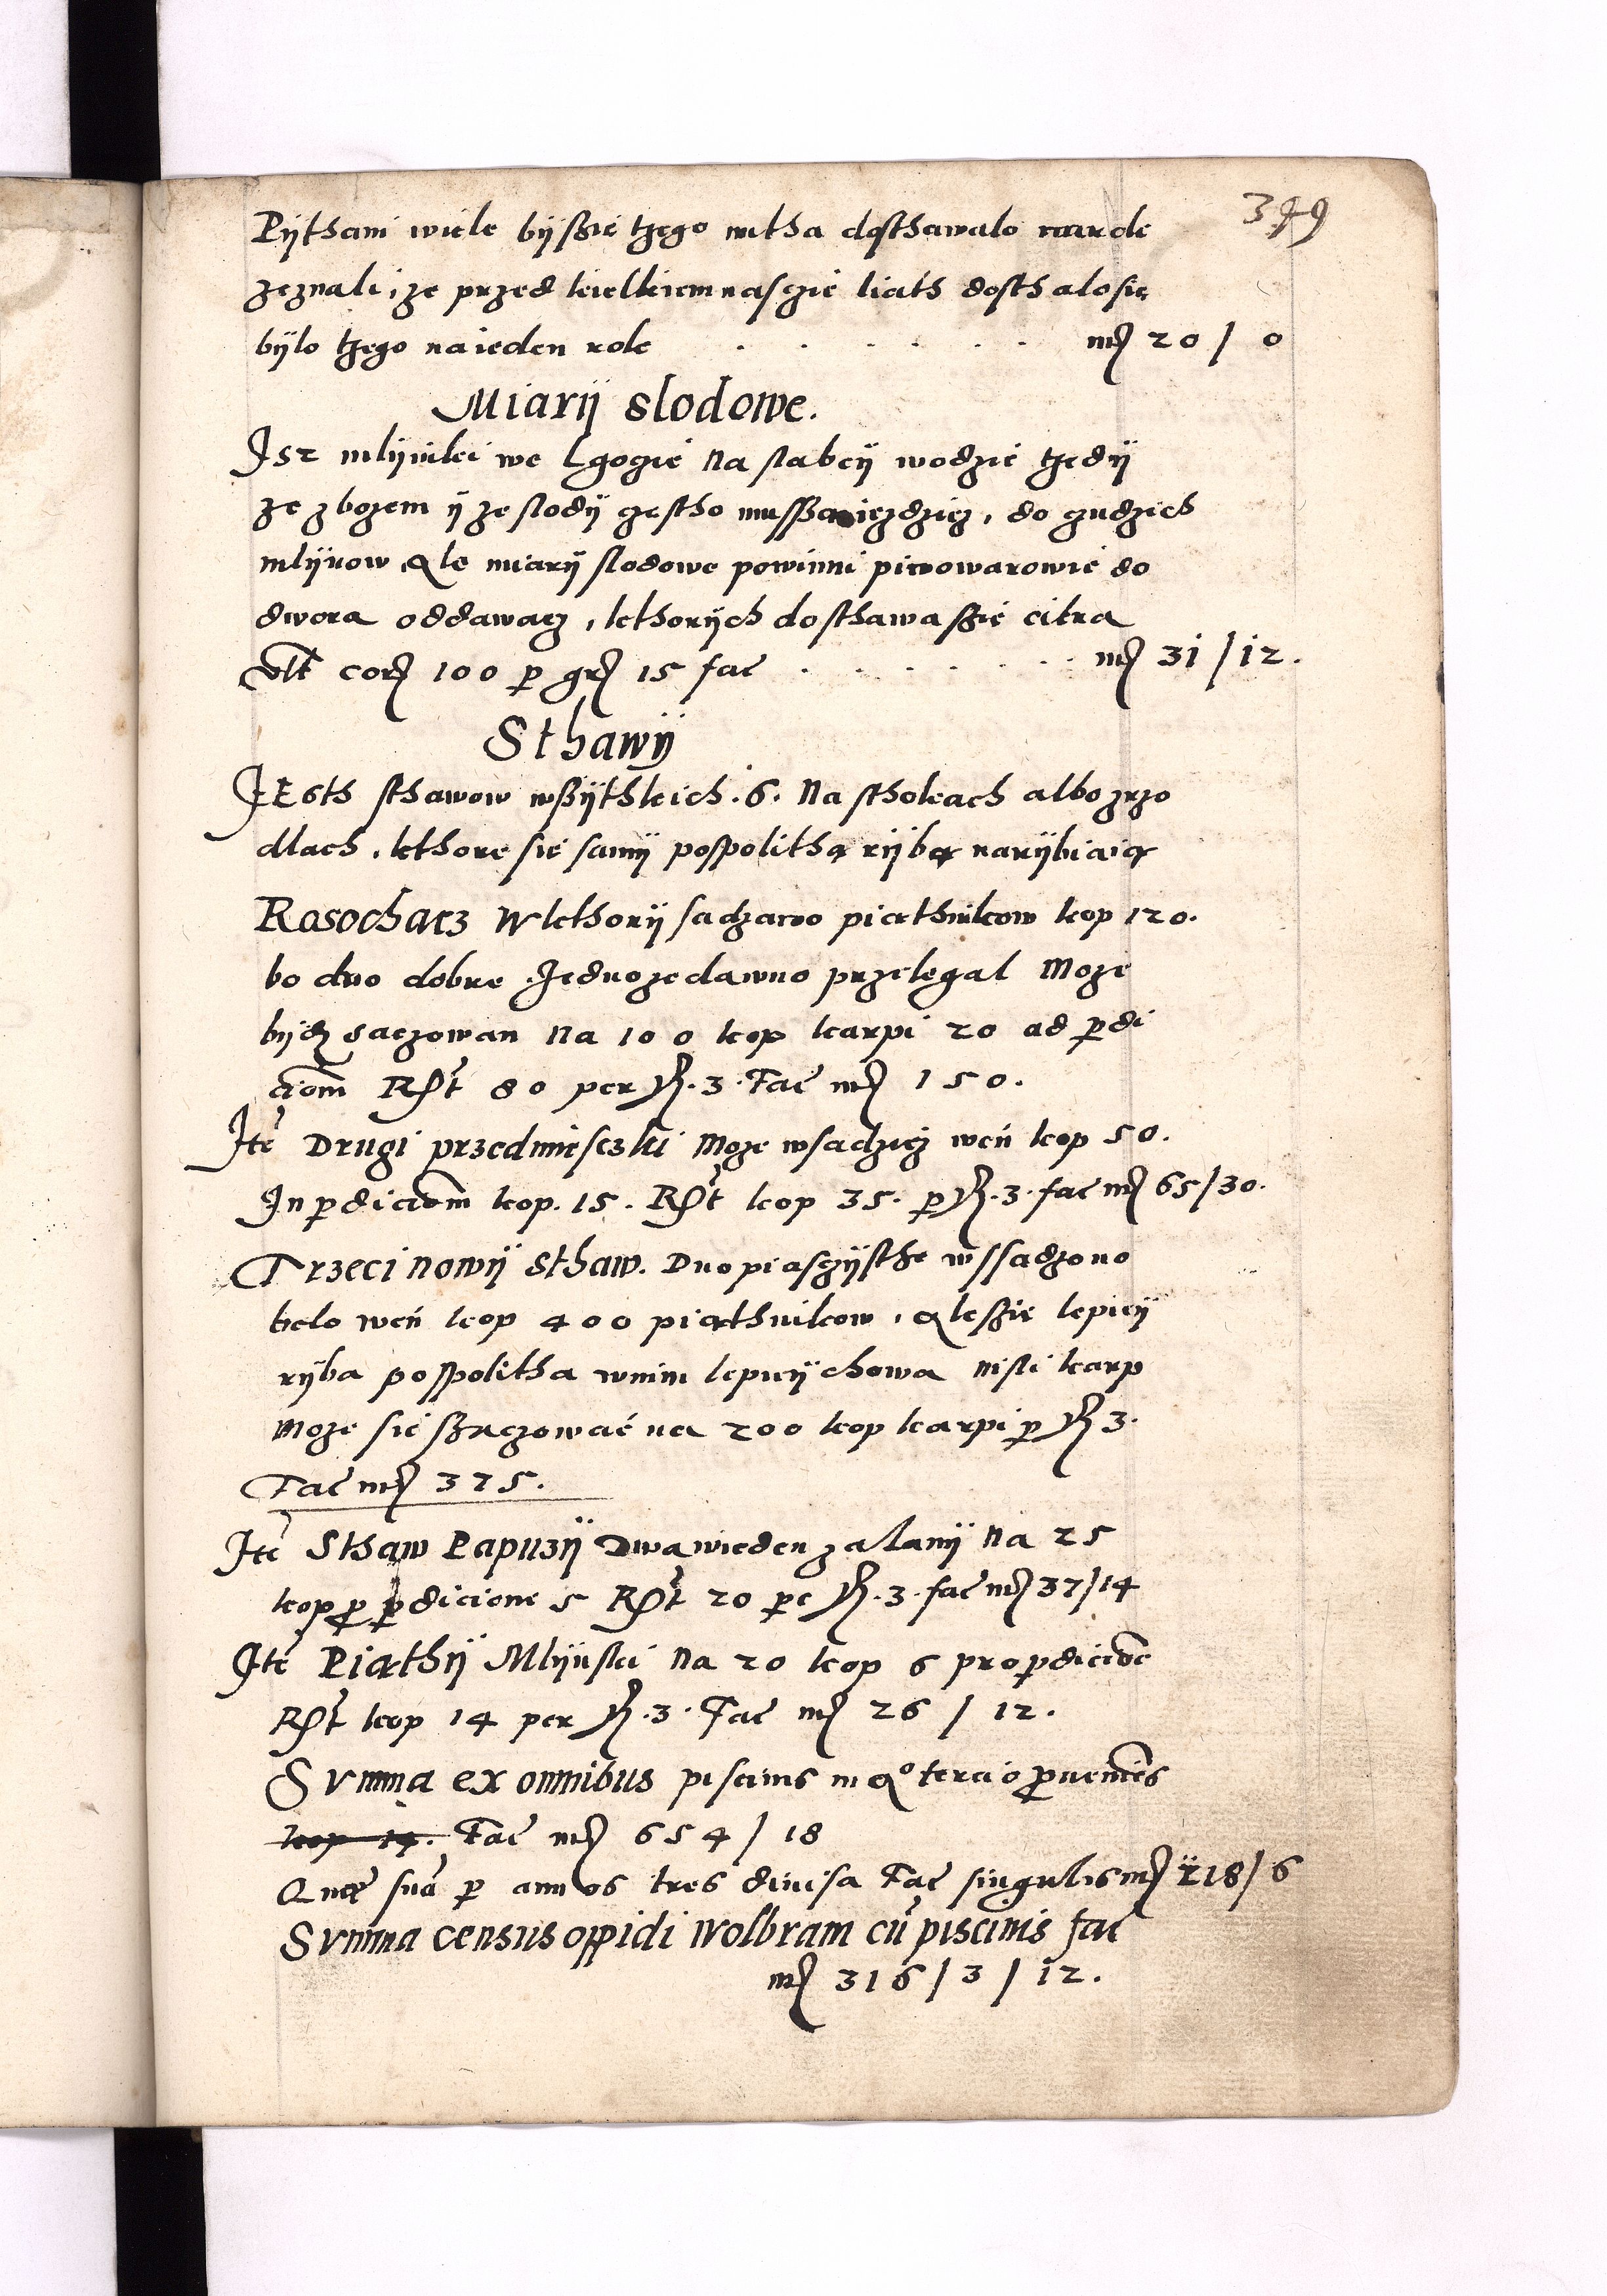 349
Pÿthani wiele bÿ ßie tzego mtha dosthawalo narok
zeznali, ze przed kielkiemnasczie liath dosthalo sie
bÿlo tzego na ieden rok . . . . . . m 20 / 0
Miarÿ slodowe.
Isz mlÿnki we Lgozie Na slabeÿ wodzie tzedÿ
ze zbozem ÿ ze slodÿ czestho mußą iezdzicz, do czudzich
mlÿnow Ale miarÿ slodowe powinni piwowarowie do
dwora oddawacz, kthorÿch dosthawa ßie citra
vlt cor 100 p gr 15 fac . . . . . . m 31 / 12.
Sthawÿ
JEsth sthawow wßÿthkich . 6 . Na stholeach albo zrzo
dlach, kthore sie samÿ pospolithą rÿbą narÿbiaią
Rosochacz W kthorÿ sadzano piąthnikow kop 120.
bo dno dobre Jedno ze dawno przelegal Moze
bÿcz saczowan Na 100 kop karpi 20 ad pdi
ciom Rst 80 per fl. 3. Fac m 150.
Ite Drugi przedmiesczki Moze wsadzicz weń kop 50.
In pdiciom kop. 15. Rst kop 35. p fl. 3. fac m 65/30.
Trzeci nowÿ sthaw. Dno piasczÿsthe wssadzono
belo weń kop 400 piąthnikow, Ale ßie lepieÿ
rÿba pospolitha wnim lepieÿ chowa nisli karp
Moze sie ßaczowac na 200 kop karpi p fl 3.
Fac m 375.
Ite Sthaw Papuzÿ Dwa wieden zalanÿ Na 25
kop p pdicione 5 Rst 20 per fl. 3. fac m 37/14
Ite Piąthÿ Mlÿnski Na 20 kop 6 pro pdicioe
Rst kop 14 per fl. 3. Fac m 26 / 12.
Summa ex omnibus piscinis in Ao tercio puenietes
kop 14. Fac m 654 / 18
Que sua p annos tres divisa Fac singulis m 218/6
Summa census oppidi Wolbram cu piscinis fac
m 316 / 3 / 12.